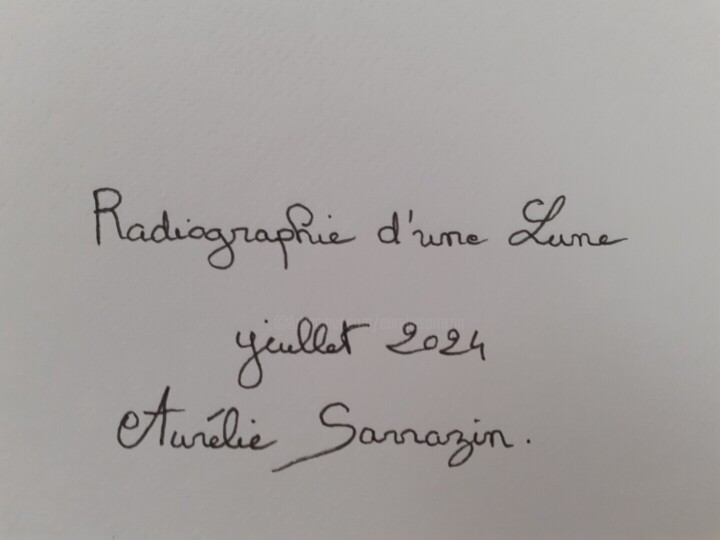 Radiographie d'une Lune
juillet 2024
Aurélie Sarrazin.